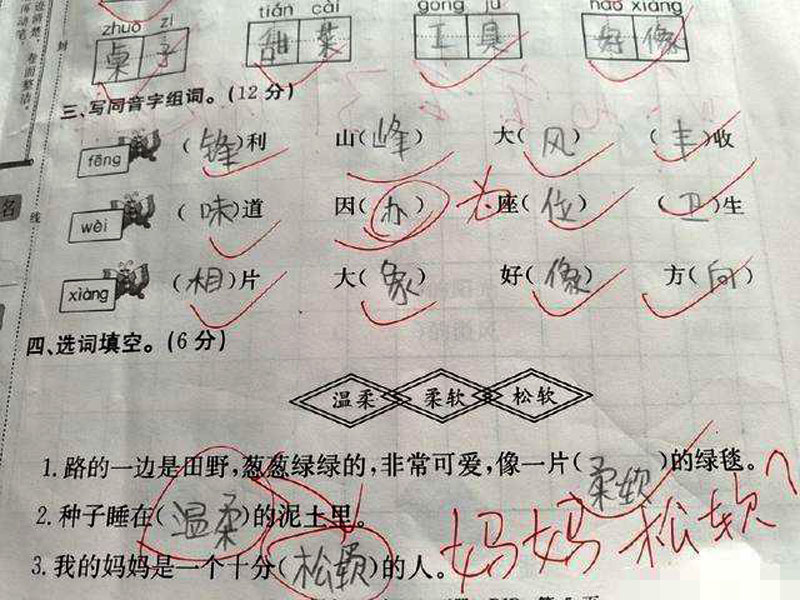 zhuō zi tián cài gōng jù hǎo xiàng
桌子 甜菜 工具 好像
三、写同音字组词。(12分)
fēng (锋)利 山(峰) 大(风) (丰)收
wèi (味)道 因(办) 为 座(位) (卫)生
xiàng (相)片 大(象) 好(像) 方(向)
四、选词填空。(6分)
温柔 柔软 松软
1.路的一边是田野,葱葱绿绿的,非常可爱,像一片(柔软)的绿毯。
2.种子睡在(温柔)的泥土里。
3.我的妈妈是一个十分(松软)的人。
妈妈松软?
名
线
封